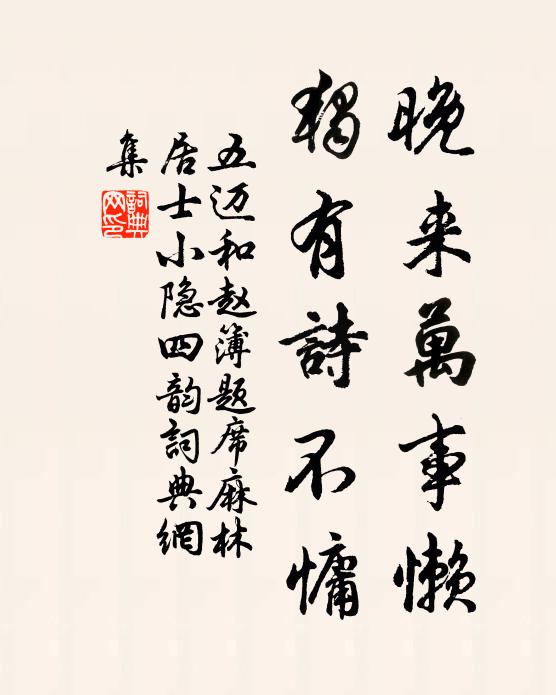 晚来萬事懒
独有詩不慵
五迈和赵簿题席麻林
居士小隐四韵詞典網
集
詞典
网印